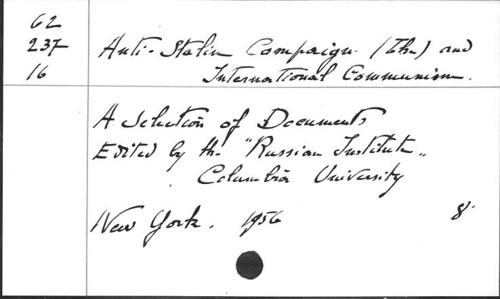 62
237
16
Anti-Stalin Campaign. (The) and
International Communism.
A Selection of Documents
Edited by the "Russian Institute„
Columbia University
New York. 1956 8°